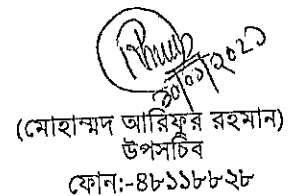 ২০/০১/২০২১
(মোহাম্মদ আরিফুর রহমান)
উপসচিব
ফোন:-৪৮১১৮৮২৮